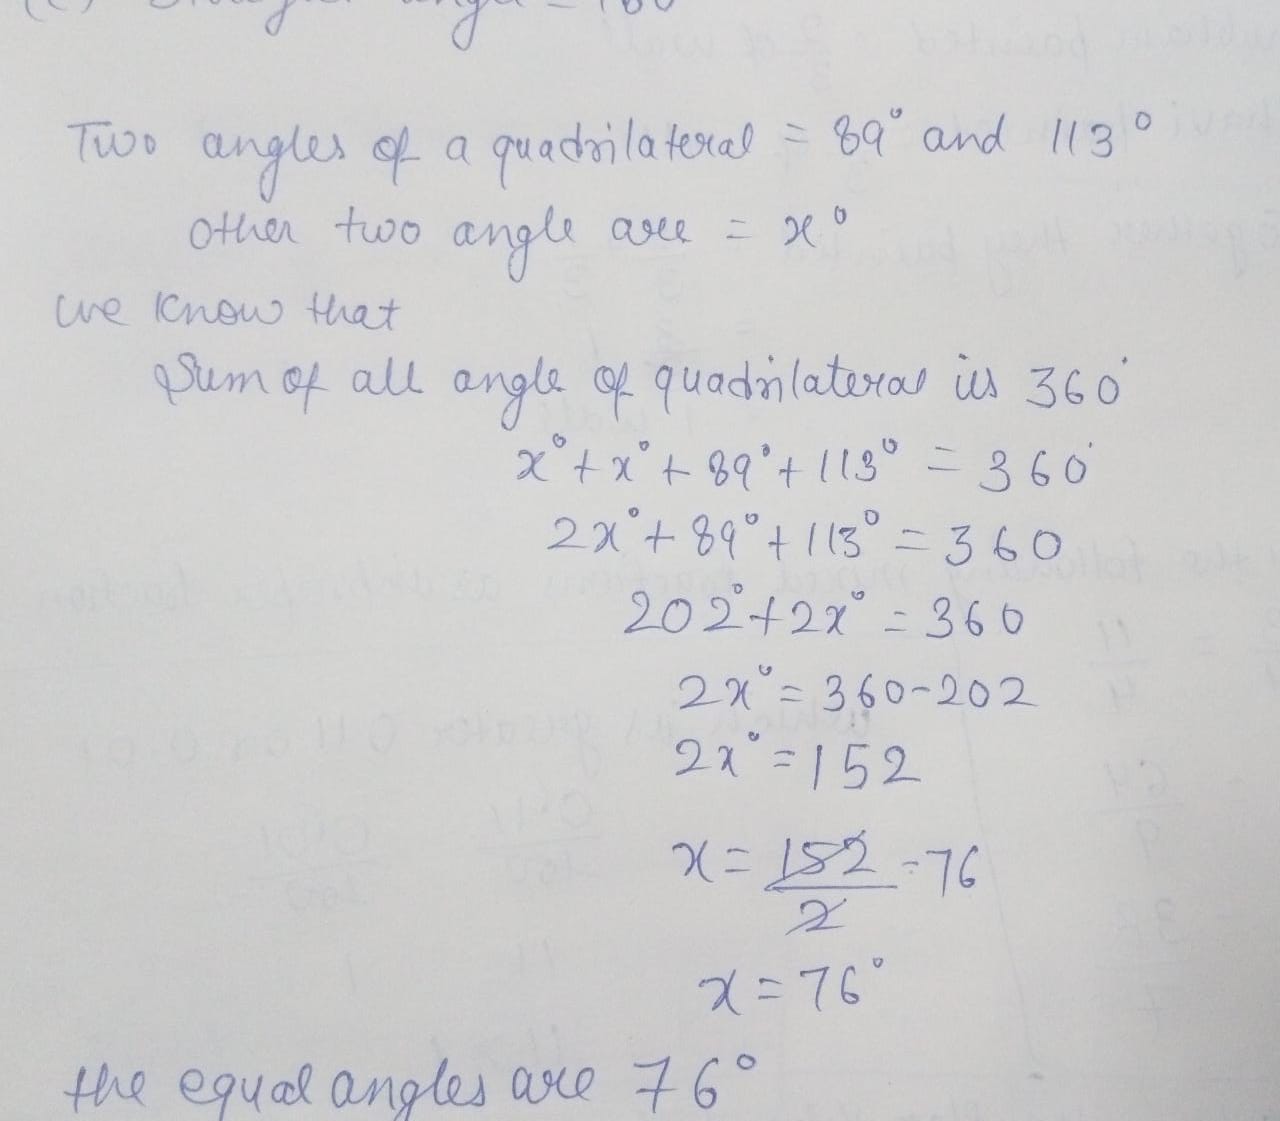 Two angles of a quadrilateral = 89° and 113°
other two angle are = x°
we know that
Sum of all angle of quadrilateral is 360°
x° + x° + 89° + 113° = 360°
2x° + 89° + 113° = 360
202° + 2x° = 360
2x° = 360-202
2x° = 152
x = 152/2 = 76
x = 76°
the equal angles are 76°